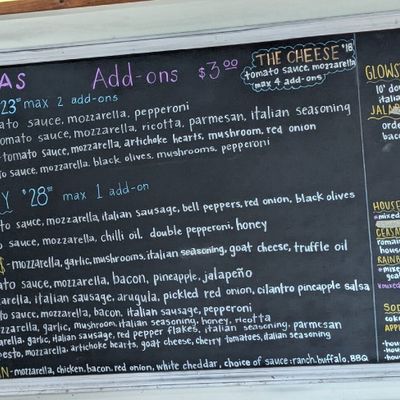 AS Add-ons $3.00
THE CHEESE $18
tomato sauce, mozzarella
max 4 add-ons
23 max 2 add-ons
ato sauce, mozzarella, pepperoni
tomato sauce, mozzarella, ricotta, parmesan, italian seasoning
-tomato sauce, mozzarella, artichoke hearts, mushroom, red onion
sauce, mozzarella, black olives, mushrooms, pepperoni
Y $28 max 1 add-on
sauce, mozzarella, italian sausage, bell peppers, red onion, black olives
sauce, mozzarella, chilli oil, double pepperoni, honey
- mozzarella, garlic, mushrooms, italian seasoning, goat cheese, truffle oil
sauce, mozzarella, bacon, pineapple, jalapeño
italian sausage, arugula, pickled red onion, cilantro pineapple salsa
sauce, mozzarella, bacon, italian sausage, pepperoni
garlic, mushroom, italian seasoning, honey, ricotta
garlic, italian sausage, red pepper flakes, italian seasoning, parmesan
mozzarella, artichoke hearts, goat cheese, cherry tomatoes, italian seasoning
- mozzarella, chicken, bacon, red onion, white cheddar, choice of sauce: ranch, buffalo, BBQ
GLOWS
10"
JALA
HOUSE
mixed
CEASA
romain
house
RAINB
mixed
SOD
coke
APP